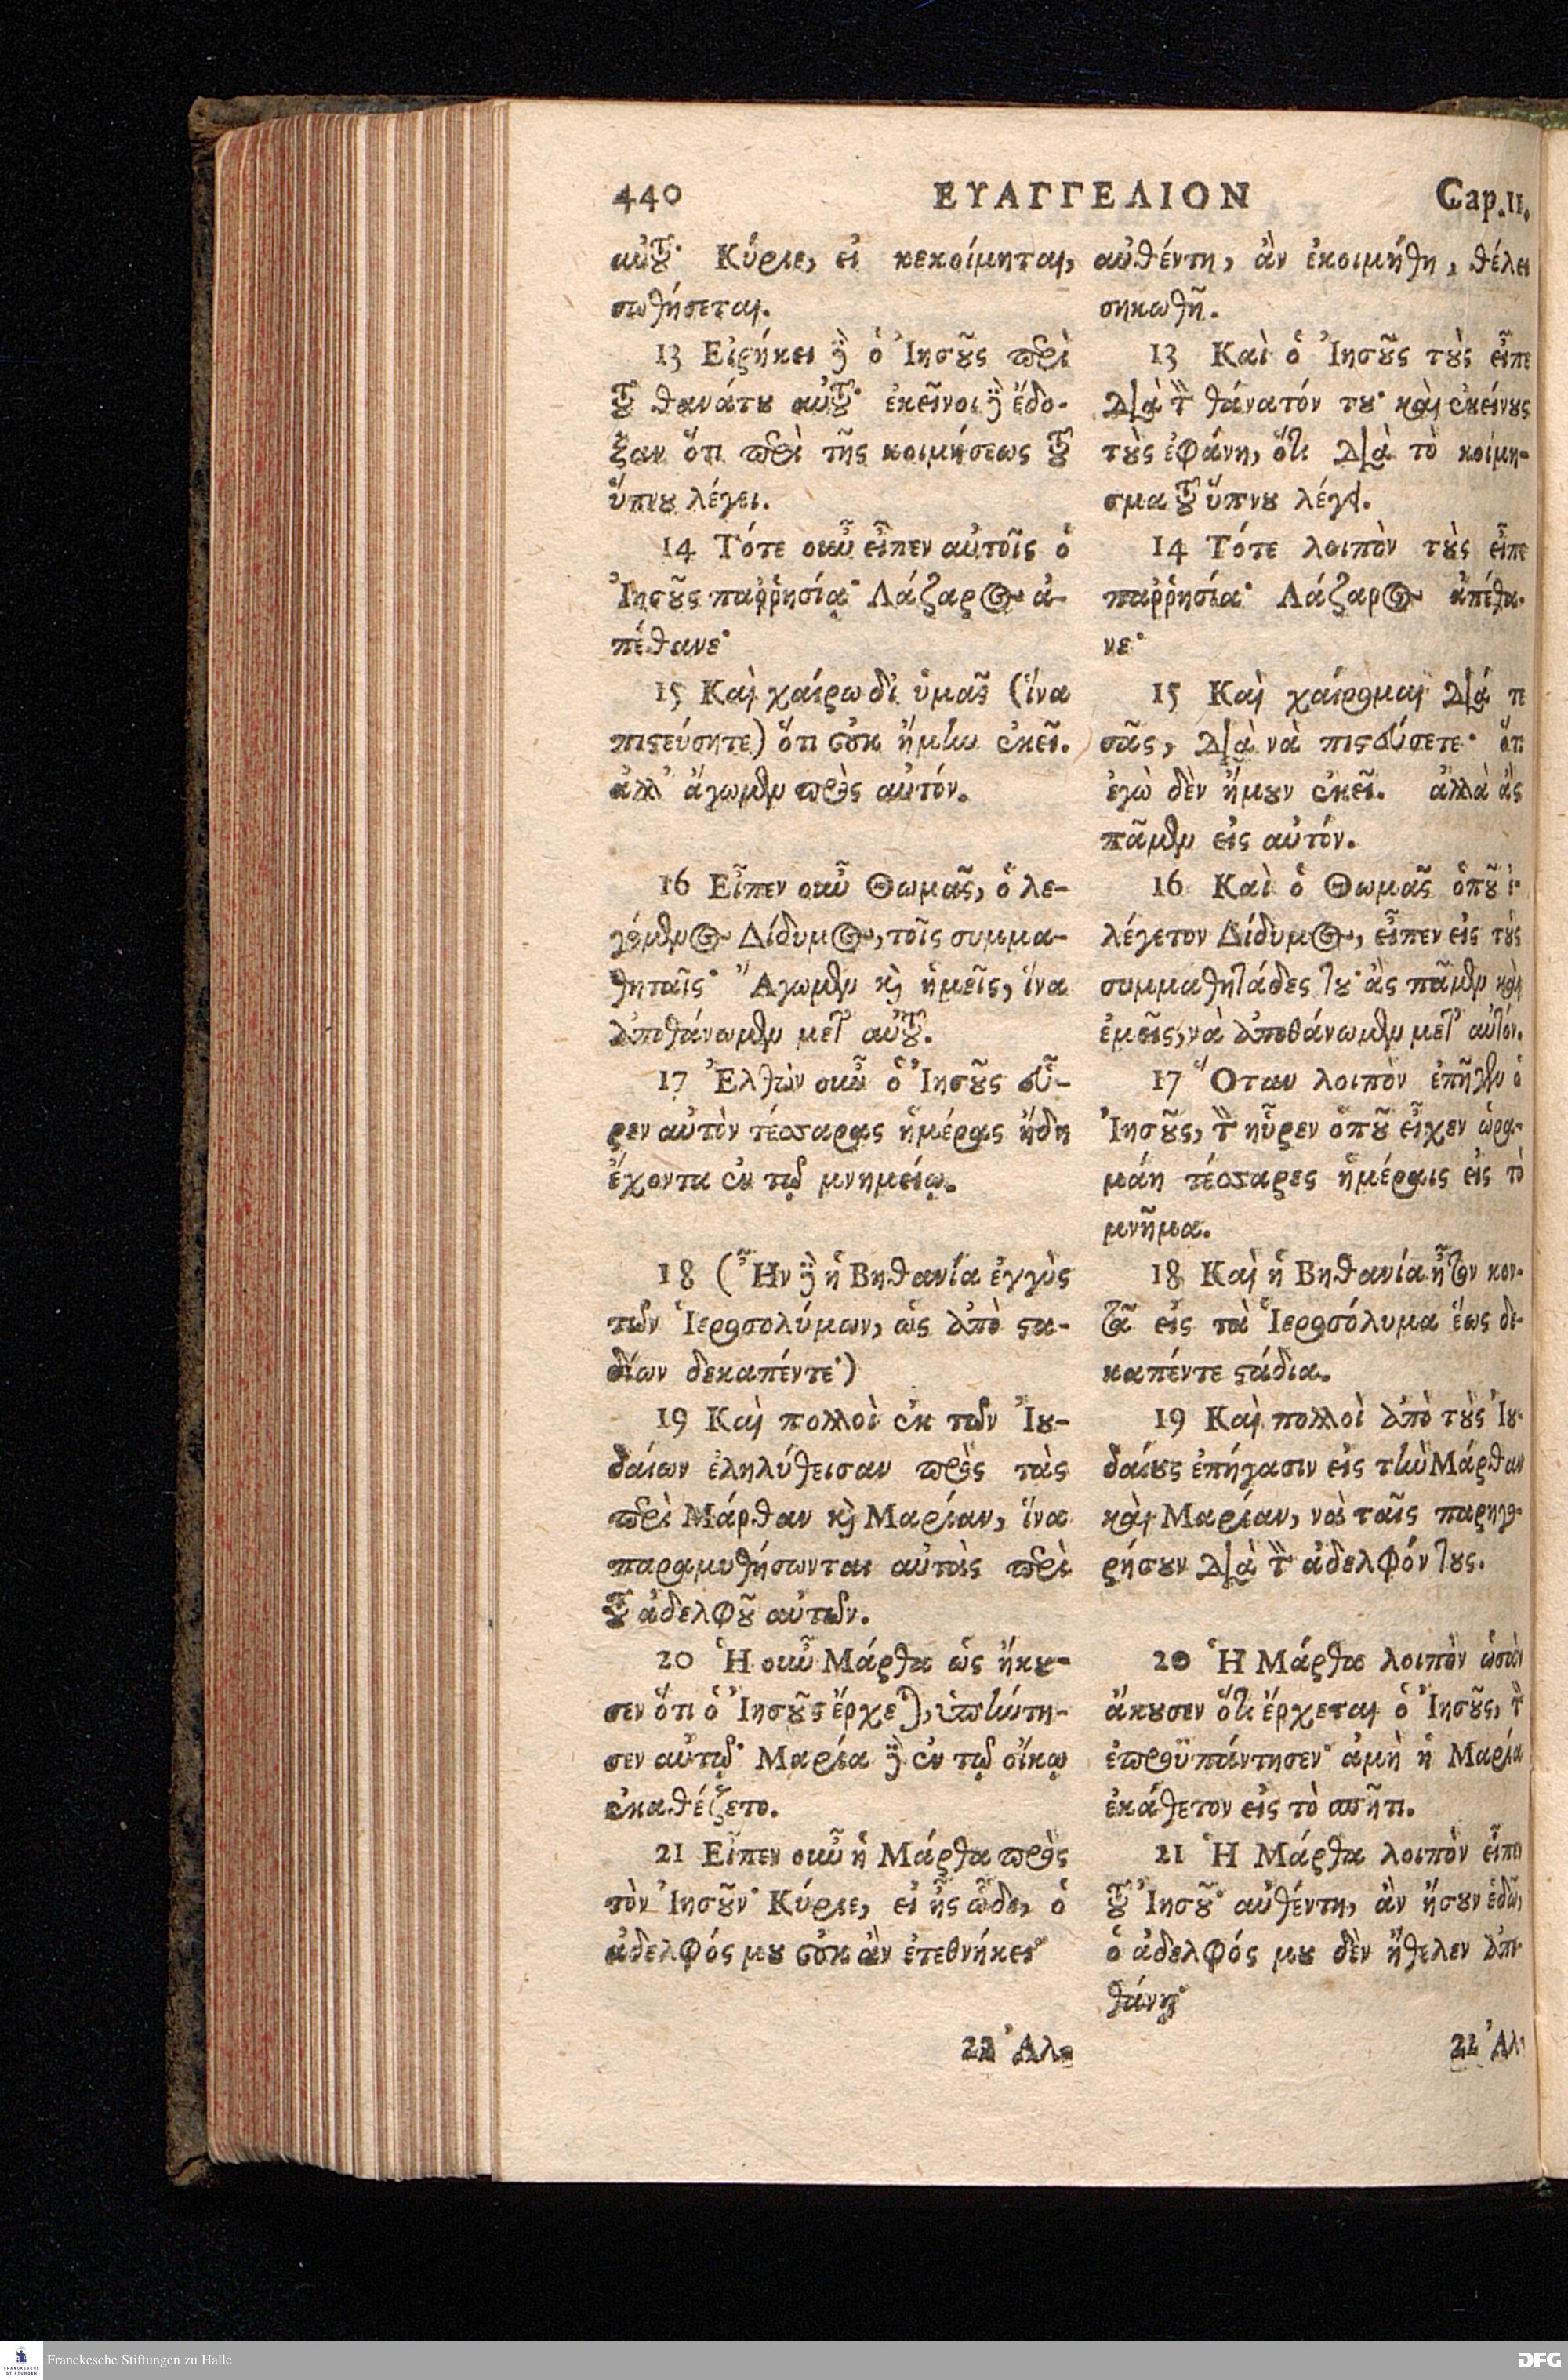 440 ΕΥΑΓΓΕΛΙΟΝ Cap.11.
αὐτȣ͂· Κύριε, εἰ κεκοίμηται,
σωθήσεται.
13 Εἰρήκει δὲ ὁ Ἰησȣ͂ς περὶ
τȣ͂ θανάτȣ αὐτȣ͂· ἐκεῖνοι δὲ ἔδο-
ξαν ὅτι περὶ τῆς κοιμήσεως τȣ͂
ὕπνȣ λέγει.
14 Τότε οὖν εἶπεν αὐτοῖς ὁ
Ἰησȣ͂ς παῤῥησίᾳ· Λάζαρος ἀ-
πέθανε·
15 Καὶ χαίρω δι' ὑμᾶς (ἵνα
πιϛεύσητε) ὅτι οὐκ ἤμην ἐκεῖ.
ἀλλ' ἄγωμεν πρὸς αὐτόν.
16 Εἶπεν οὖν Θωμᾶς, ὁ λε-
γόμενος Δίδυμος, τοῖς συμμα-
θηταῖς· Ἄγωμεν κὶ ἡμεῖς, ἵνα
ἀποθάνωμεν μετ' αὐτȣ͂.
17 Ἐλθὼν οὖν ὁ Ἰησȣ͂ς εὗ-
ρεν αὐτὸν τέσσαρας ἡμέρας ἤδη
ἔχοντα ἐν τῷ μνημείῳ.
18 (Ἦν δὲ ἡ Βηθανία ἐγγὺς
τῶν Ἱεροσολύμων, ὡς ἀπὸ ϛα-
δίων δεκαπέντε·)
19 Καὶ πολλοὶ ἐκ τῶν Ἰȣ-
δαίων ἐληλύθεισαν πρὸς τὰς
περὶ Μάρθαν κὶ Μαρίαν, ἵνα
παραμυθήσωνται αὐτὰς περὶ
τȣ͂ ἀδελφȣ͂ αὐτῶν.
20 Ἡ οὖν Μάρθα ὡς ἤκȣ-
σεν ὅτι ὁ Ἰησȣ͂ς ἔρχεται, ὑπήντη-
σεν αὐτῷ· Μαρία δὲ ἐν τῷ οἴκῳ
ἐκαθέζετο.
21 Εἶπεν οὖν ἡ Μάρθα πρὸς
τὸν Ἰησȣ͂ν· Κύριε, εἰ ἦς ὧδε, ὁ
ἀδελφός μȣ οὐκ ἂν ἐτεθνήκει·
22 Ἀλ-
αὐθέντη, ἂν ἐκοιμήθη, θέλει
σηκωθῆ.
13 Καὶ ὁ Ἰησȣ͂ς τȣ̀ς εἶπε
διὰ τὸν θάνατόν τȣ· καὶ ἐκείνȣς
τȣ̀ς ἐφάνη, ὅτι διὰ τὸ κοίμη-
σμα τȣ͂ ὕπνȣ λέγει.
14 Τότε λοιπὸν τȣ̀ς εἶπε
παῤῥησία· Λάζαρος ἀπέθα-
νε·
15 Καὶ χαίρομαι διά τι
σᾶς, διὰ νὰ πιϛεύσετε· ὅτι
ἐγὼ δὲν ἤμȣν ἐκεῖ. ἀλλὰ ἂς
πᾶμεν εἰς αὐτόν.
16 Καὶ ὁ Θωμᾶς ὁπȣ͂ ἐ-
λέγετον Δίδυμος, εἶπεν εἰς τȣ̀ς
συμμαθητάδες τȣ· ἂς πᾶμεν καὶ
ἐμεῖς, νὰ ἀποθάνωμεν μετ' αὐτόν.
17 Ὅταν λοιπὸν ἐπῆγεν ὁ
Ἰησȣ͂ς, τὸν ηὗρεν ὁπȣ͂ εἶχεν ὡρα-
μάη τέσσαρες ἡμέραις εἰς τὸ
μνῆμα.
18 Καὶ ἡ Βηθανία ἦτον κον-
τᾶ εἰς τὰ Ἱεροσόλυμα ἕως δε-
καπέντε ϛάδια.
19 Καὶ πολλοὶ ἀπὸ τȣ̀ς Ἰȣ-
δαίȣς ἐπήγασιν εἰς τὴν Μάρθαν
καὶ Μαρίαν, νὰ ταῖς παρηγο-
ρήσȣν διὰ τὸν ἀδελφόν τȣς.
20 Ἡ Μάρθα λοιπὸν ὡσὰν
ἄκȣσεν ὅτι ἔρχεται ὁ Ἰησȣ͂ς, τὸν
ἐπροϋπάντησεν· ἀμὴ ἡ Μαρία
ἐκάθετον εἰς τὸ σπῆτι.
21 Ἡ Μάρθα λοιπὸν εἶπεν
τȣ͂ Ἰησȣ͂· αὐθέντη, ἂν ἤσȣν ἐδῶ,
ὁ ἀδελφός μȣ δὲν ἤθελεν ἀπο-
θάνῃ·
22 Ἀλ-
Franckesche Stiftungen zu Halle
DFG